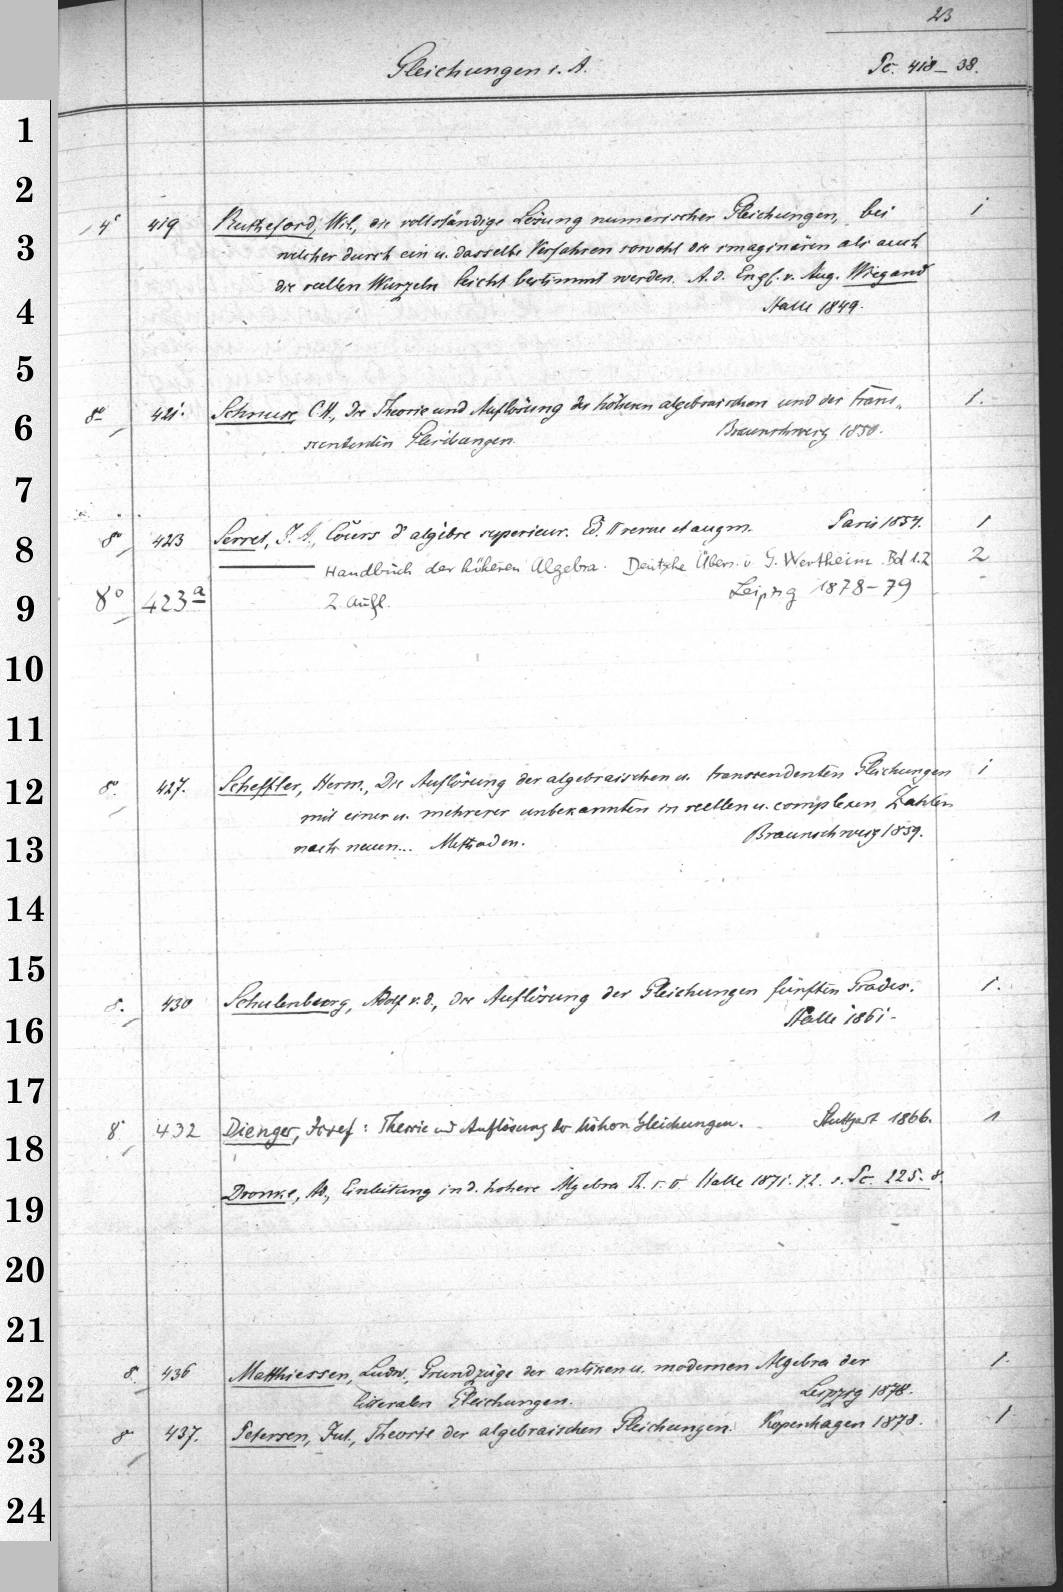 23
Gleichungen i. A. Pc. 418–38.
1
2
4° 419 Rutherford, Wil., die vollständige Lösung numerischer Gleichungen, bei 1
3
welcher durch ein u. dasselbe Verfahren sowohl die imaginären als auch
die reellen Wurzeln leicht bestimmt werden. A. d. Engl. v. Aug. Wiegand
4
Halle 1849.
5
8° 421. Schnuse, C. H., Die Theorie und Auflösung der höhern algebraischen und der trans- 1.
6
scendenten Gleichungen. Braunschweig 1850.
7
8° 423 Serret, J. A., Cours d'algèbre superieur. Ed. II revue et augm. Paris 1854. 1
8
Handbuch der höheren Algebra. Deutsche Übers. v. G. Wertheim. Bd 1.2 2
8° 423a 2. Aufl. Leipzig 1878–79
9
10
11
8°. 427. Scheffler, Herm., Die Auflösung der algebraischen u. transcendenten Gleichungen 1
12
mit einer u. mehrerer unbekannten in reellen u. complexen Zahlen
13
nach neuen... Methoden. Braunschweig 1859.
14
15
8. 430 Schulenburg, Adolf v. d., die Auflösung der Gleichungen fünften Grades. 1.
16
Halle 1861.
17
8° 432 Dienger, Josef: Theorie und Auflösung der höhern Gleichungen. Stuttgart 1866. 1
18
Dronke, Ad., Einleitung in d. höhere Algebra Halle 1871. 72. s. Pc. 225. 8.
19
20
21
8. 436 Matthiessen, Ludw., Grundzüge der antiken u. modernen Algebra der 1.
22
litteralen Gleichungen. Leipzig 1878.
8 437. Petersen, Jul., Theorie der algebraischen Gleichungen. Kopenhagen 1878. 1
23
24